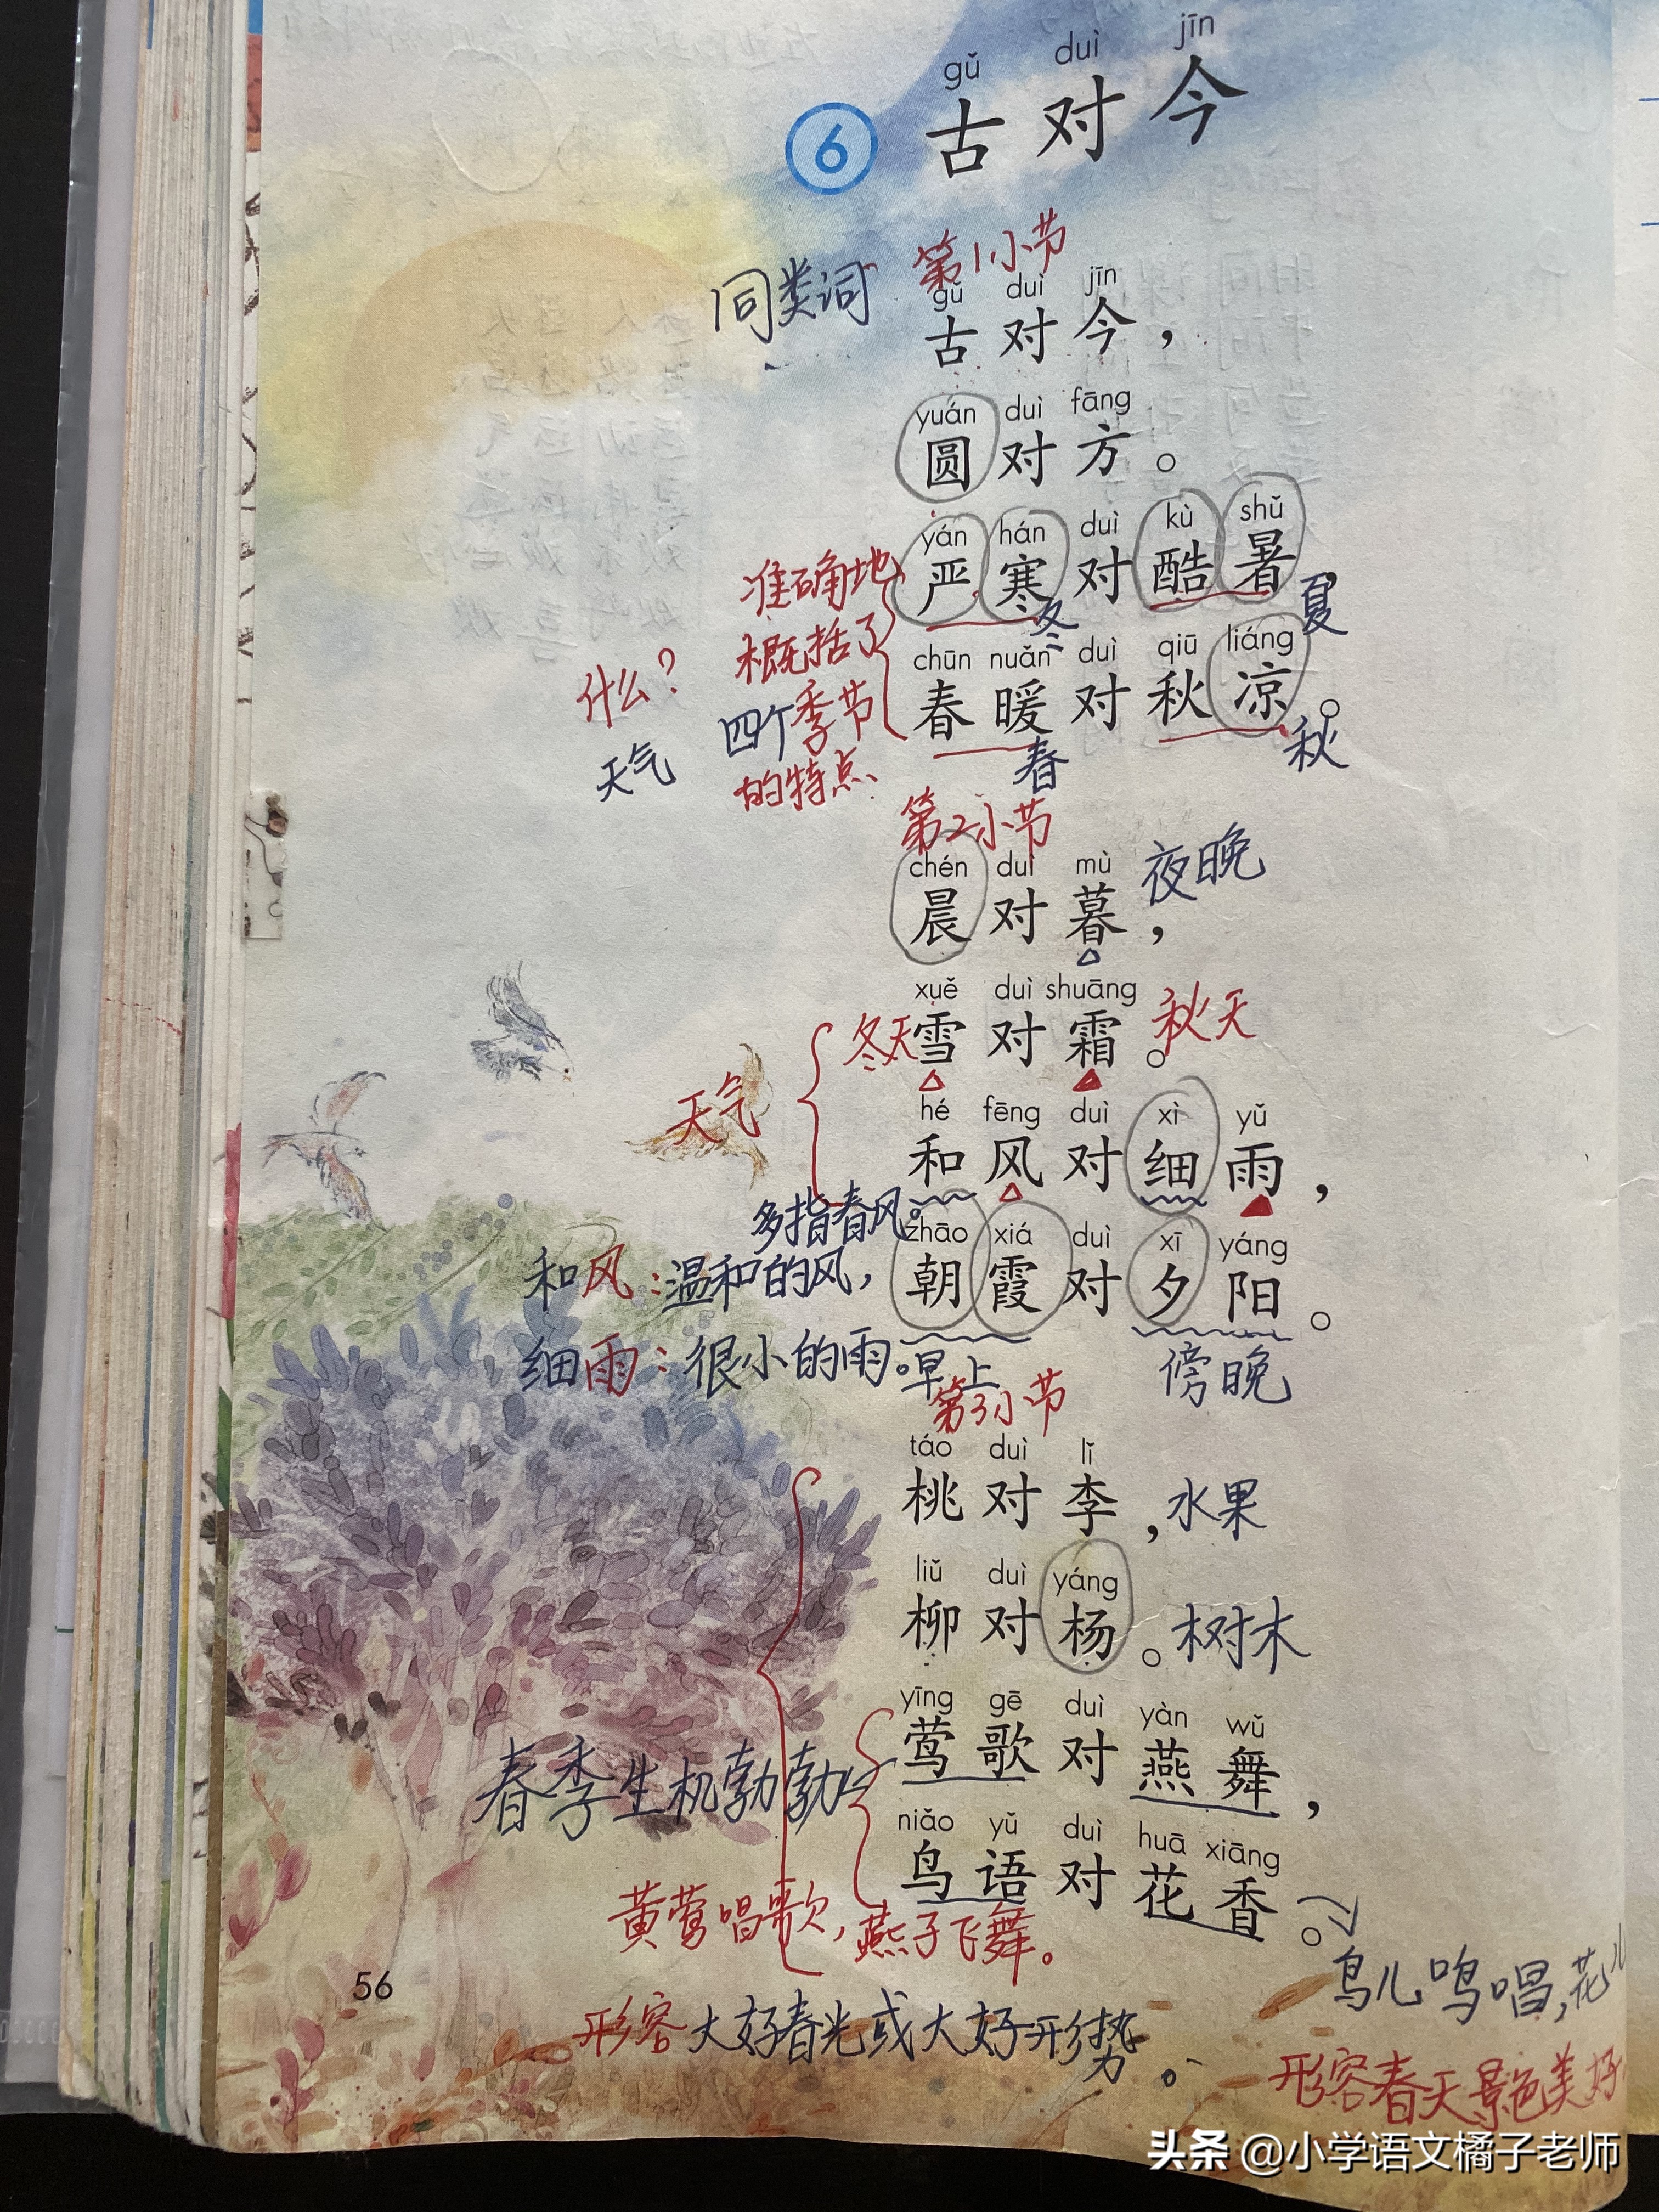 gǔ duì jīn
6 古对今
第1小节
同类词
gǔ duì jīn
古对今，
yuán duì fāng
圆对方。
yán hán duì kù shǔ
严寒对酷暑，
冬 夏
chūn nuǎn duì qiū liáng
春暖对秋凉。
春 秋
准确地
概括了
四个季节
的特点
什么？
天气
第2小节
chén duì mù
晨对暮，
夜晚
xuě duì shuāng
雪对霜。
冬天 秋天
天气
hé fēng duì xì yǔ
和风对细雨，
多指春风。
和风：温和的风，
细雨：很小的雨。
zhāo xiá duì xī yáng
朝霞对夕阳。
早上 傍晚
第3小节
táo duì lǐ
桃对李，
水果
liǔ duì yáng
柳对杨。
树木
yīng gē duì yàn wǔ
莺歌对燕舞，
春季生机勃勃
niǎo yǔ duì huā xiāng
鸟语对花香。
黄莺唱歌，燕子飞舞。
鸟儿鸣唱，花
56
形容大好春光或大好形势。
形容春天景色美好
头条 @小学语文橘子老师